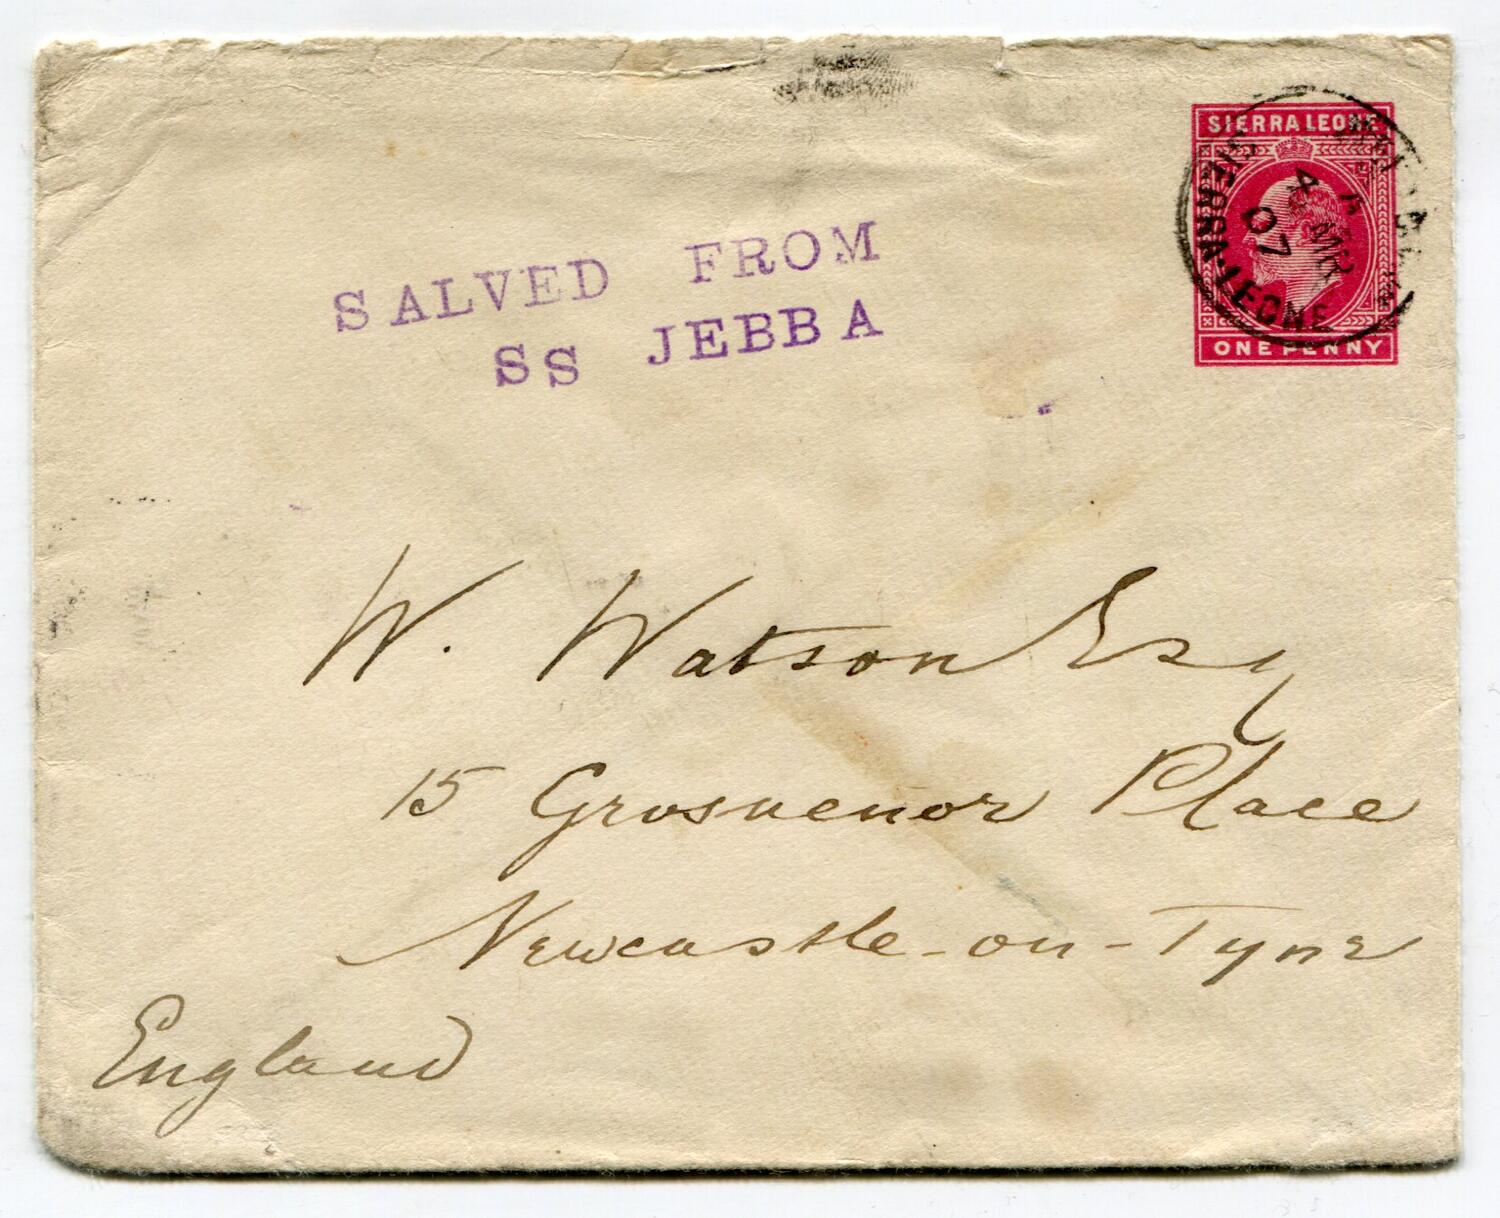 SIERRA LEONE
SIERRA LEONE
A
4 MR
07
ONE PENNY
SALVED FROM
SS JEBBA
W. Watson Esq
15 Grosvenor Place
Newcastle-on-Tyne
England